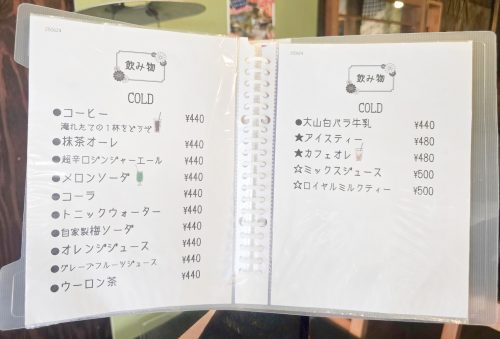 飲み物
COLD
●コーヒー ¥440
淹れたての1杯をどうぞ
●抹茶オーレ ¥440
●超辛口ジンジャーエール ¥440
●メロンソーダ ¥440
●コーラ ¥440
●トニックウォーター ¥440
●自家製梅ソーダ ¥440
●オレンジジュース ¥440
●グレープフルーツジュース ¥440
●ウーロン茶
飲み物
COLD
●大山白バラ牛乳 ¥440
★アイスティー ¥480
★カフェオレ ¥480
☆ミックスジュース ¥500
☆ロイヤルミルクティー ¥500